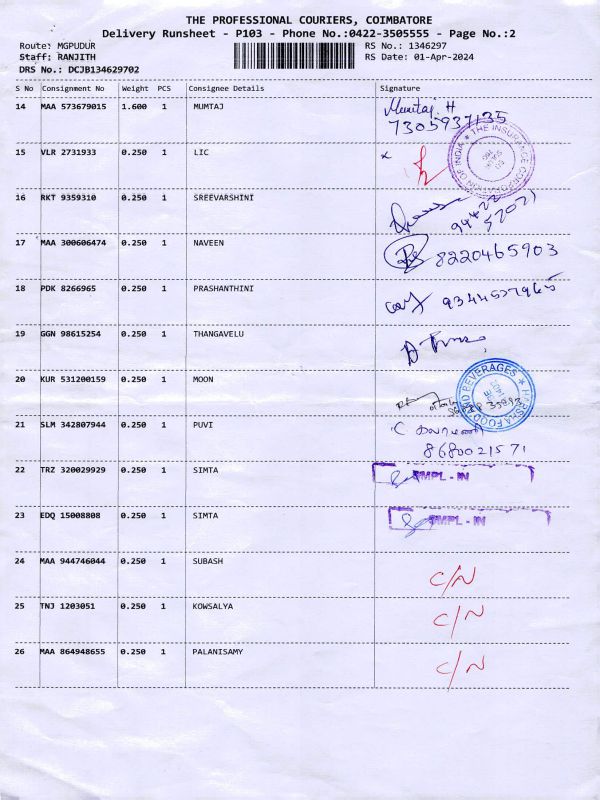 THE PROFESSIONAL COURIERS, COIMBATORE
Delivery Runsheet - P103 - Phone No.:0422-3505555 - Page No.:2
Route: MGPUDUR RS No.: 1346297
Staff: RANJITH RS Date: 01-Apr-2024
DRS No.: DCJB134629702
S No Consignment No Weight PCS Consignee Details Signature
14 MAA 573679015 1.600 1 MUMTAJ Mumtaj. H
7305937135
15 VLR 2731933 0.250 1 LIC x
THE INSURANCE CORPORATION OF INDIA
16 RKT 9359310 0.250 1 SREEVARSHINI 94422
57071
17 MAA 300606474 0.250 1 NAVEEN 8220465903
18 PDK 8266965 1 0.250 PRASHANTHINI 9344537965
19 GGN 98615254 0.250 1 THANGAVELU
20 KUR 531200159 0.250 1 MOON
HARSHA FOOD AND BEVERAGES
21 SLM 342807944 0.250 1 PUVI C கலாமணி
8680021571
22 TRZ 320029929 0.250 1 SIMTA SMPL - IN
23 EDQ 15008808 0.250 1 SIMTA SMPL - IN
24 MAA 944746044 0.250 1 SUBASH C/N
25 TNJ 1203051 0.250 1 KOWSALYA C/N
26 MAA 864948655 0.250 1 PALANISAMY C/N